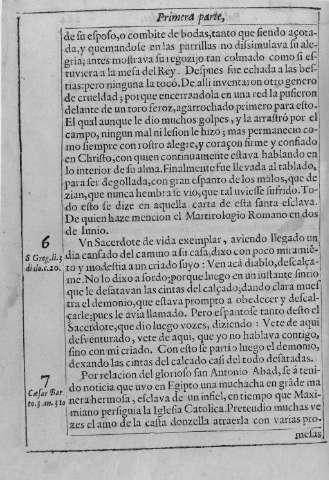 Primera parte,
de su esposo, o combite de bodas, tanto que siendo açota-
da, y quemandose en las parrillas no dissimulava su ale-
gria; antes mostrava su regozijo tan colmado como si es-
tuviera a la mesa del Rey. Despues fue echada a las bes-
tias: pero ninguna la tocò. De alli inventaron otro genero
de crueldad; porque encerrandola en una red la pusieron
delante de un toro feroz, agarrochado primero para esto.
El qual aunque le dio muchos golpes, y la arrastrò por el
campo, ningun mal ni lesion le hizo; mas permanecio co-
mo siempre con rostro alegre, y coraçon firme y confiado
en Christo, con quien continuamente estava hablando en
lo interior de su alma. Finalmente fue llevada al tablado,
para ser degollada, con gran espanto de los malos, que de
zian, que nunca hembra se vio, que tal uviesse sufrido. To-
do esto se dize en aquella carta de esta santa esclava.
De quien haze mencion el Martirologio Romano en dos
de Iunio.
6
S Greg. li. 3
dialo. c. 20.
Vn Sacerdote de vida exemplar, aviendo llegado un
dia cansado del camino a su casa, dixo con poco miramiē-
to y modestia a un criado suyo: Ven acà diablo, descalça-
me. No lo dixo a sordo; porque luego en un instante sintio
que le desatavan las cintas del calçado; dando clara mues
tra el demonio, que estava prompto a obedecer y descal-
çarle; pues le avia llamado. Pero espantose tanto desto el
Sacerdote, que dio luego vozes, diziendo: Vete de aqui
desventurado, vete de aqui, que yo no hablava contigo,
sino con mi criado. Con esto se partio luego el demonio,
dexando las cintas del calçado casi del todo desatadas.
7
Cæsar Bar.
to. 3. an. 310
Por relacion del glorioso san Antonio Abad, se à teni-
do noticia que uvo en Egipto una muchacha en grāde ma
nera hermosa, esclava de un infiel, en tiempo que Maxi-
miano persiguia la Iglesia Catolica. Pretendio muchas ve
zes el amo de la casta donzella atraerla con varias pro-
mesas